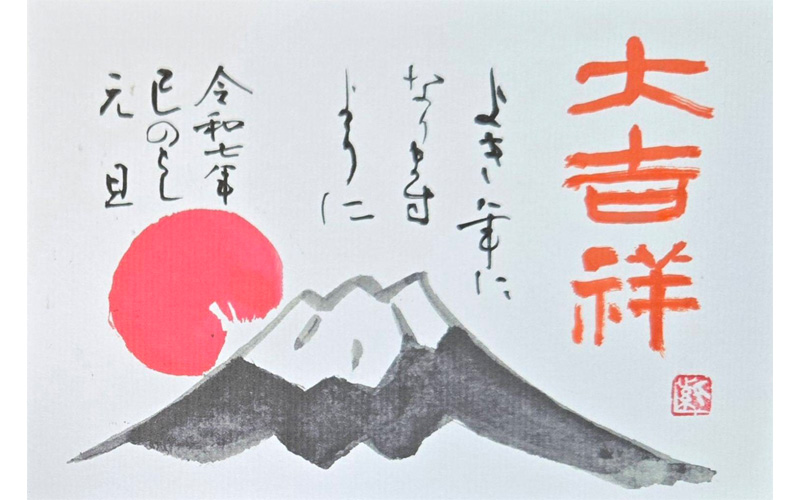 大吉祥
よき年に
なります
ように
令和七年
巳のとし
元旦